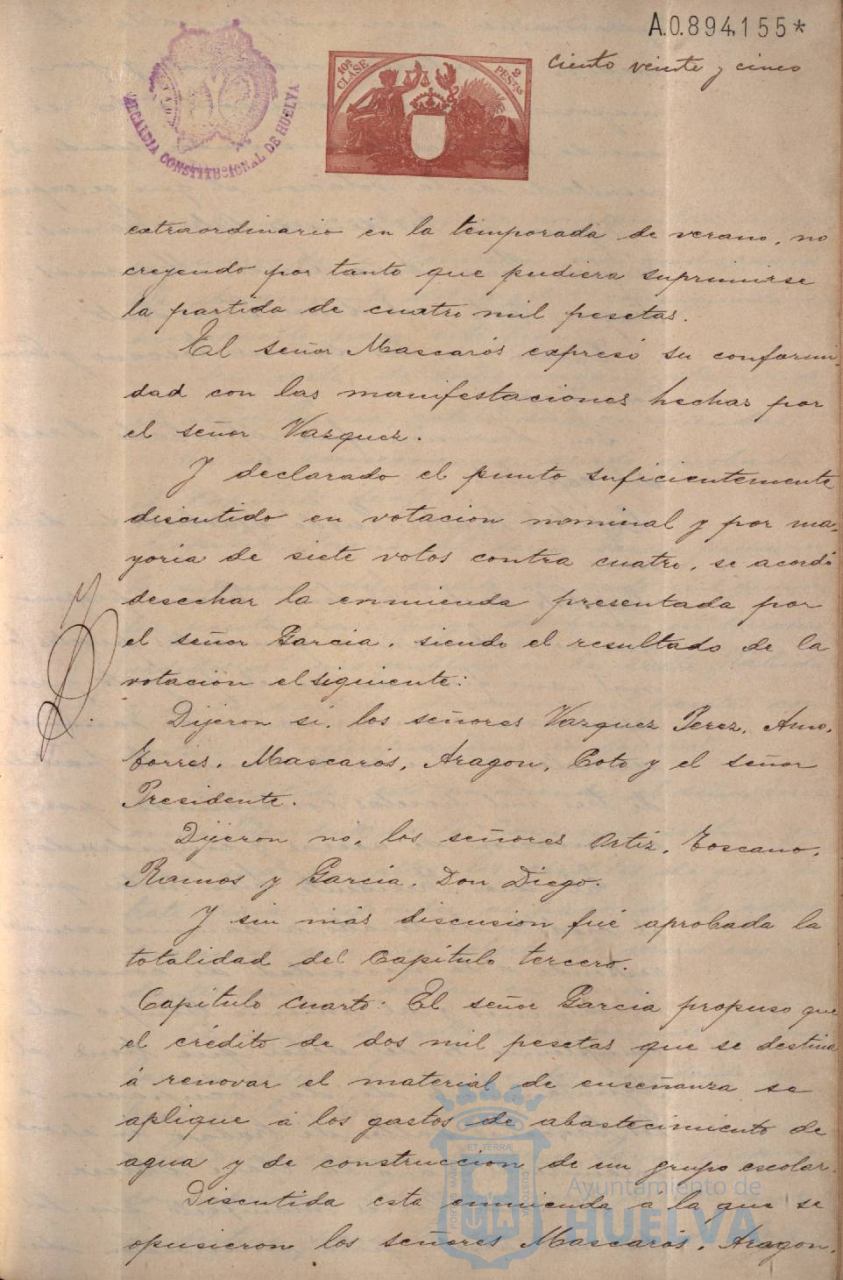 A.0.894,155*
ciento veinte y cinco
ALCALDIA CONSTITUCIONAL DE HUELVA
10ª CLASE
2 PESTAS
extraordinario en la temporada de verano, no
creyendo por tanto que pudiera suprimirse
la partida de cuatro mil pesetas.
El señor Mascarós expresó su conformi-
dad con las manifestaciones hechas por
el señor Vazquez.
Y declarado el punto suficientemente
discutido en votacion nominal y por ma-
yoria de siete votos contra cuatro, se acordó
desechar la enmienda presentada por
el señor Garcia, siendo el resultado de la
votación el siguiente:
Dijeron si, los señores Vazquez Perez, Amo,
Torres, Mascarós, Aragon, Coto y el señor
Presidente.
Dijeron no, los señores Ortiz, Toscano,
Ramos y Garcia, Don Diego.
Y sin más discusion fué aprobada la
totalidad del Capítulo tercero.
Capítulo cuarto: El señor Garcia propuso que
el crédito de dos mil pesetas que se destina
á renovar el material de enseñanza se
aplique á los gastos de abastecimiento de
agua y de construccion de un grupo escolar.
Discutida esta enmienda a la que se
opusieron los señores Mascarós, Aragon,
Ayuntamiento de
HUELVA